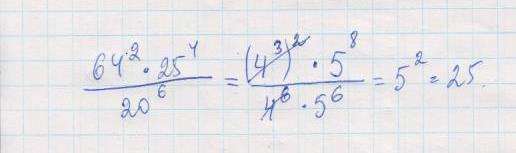 64² · 25⁴ / 20⁶ = (4³)² · 5⁸ / 4⁶ · 5⁶ = 5² = 25.